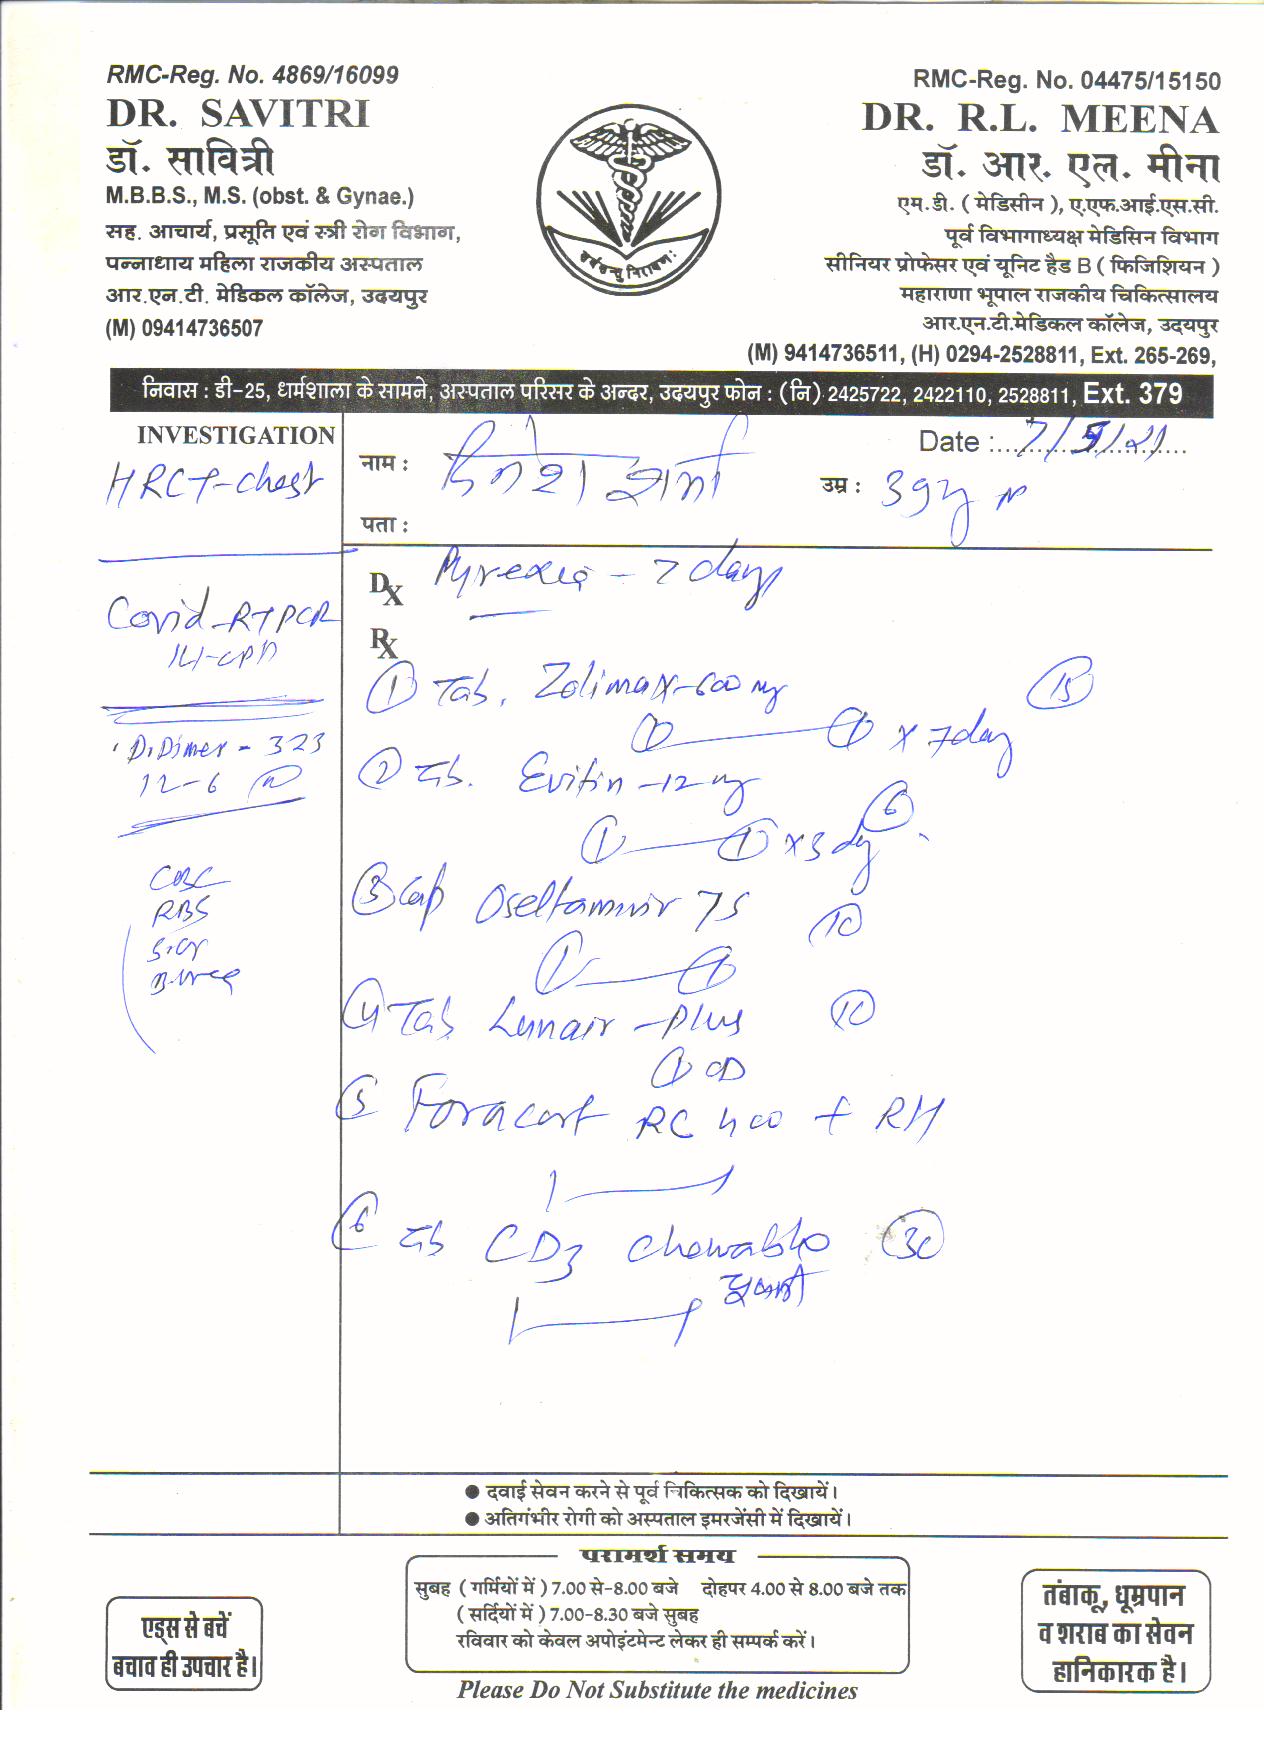 RMC-Reg. No. 4869/16099
DR. SAVITRI
डॉ. सावित्री
M.B.B.S., M.S. (obst. & Gynae.)
सह. आचार्य, प्रसूति एवं स्त्री रोग विभाग,
पन्नाधाय महिला राजकीय अस्पताल
आर.एन.टी. मेडिकल कॉलेज, उदयपुर
(M) 09414736507
RMC-Reg. No. 04475/15150
DR. R.L. MEENA
डॉ. आर. एल. मीना
एम.डी. ( मेडिसीन ), ए.एफ.आई.एस.सी.
पूर्व विभागाध्यक्ष मेडिसिन विभाग
सीनियर प्रोफेसर एवं यूनिट हैड B ( फिजिशियन )
महाराणा भूपाल राजकीय चिकित्सालय
आर.एन.टी.मेडिकल कॉलेज, उदयपुर
(M) 9414736511, (H) 0294-2528811, Ext. 265-269,
निवास : डी-25, धर्मशाला के सामने, अस्पताल परिसर के अन्दर, उदयपुर फोन : (नि) 2425722, 2422110, 2528811, Ext. 379
INVESTIGATION
HRCT-chest
Covid-RTPCR
D.Dimer - 323
12-6
CBC
RBS
S.cr
B.urea
Date : 7/5/21
नाम : दिनेश शर्मा
उम्र : 39y
पता :
Dx Pyrexia - 7 days
Rx
① Tab. Zolimax-600 mg ⑮
① ① x 7day
② Tab. Evitin -12 mg ⑥
① ① x 3 day
③ Cap Oseltamivir 75 ⑩
① ①
④ Tab Lunair -Plus ⑩
① OD
⑤ Foracort RC 400 + RH
1 1
⑥ Tab CD3 chewable ㉚
1 1
● दवाई सेवन करने से पूर्व चिकित्सक को दिखायें।
● अतिगंभीर रोगी को अस्पताल इमरजेंसी में दिखायें।
परामर्श समय
सुबह ( गर्मियों में ) 7.00 से-8.00 बजे दोहपर 4.00 से 8.00 बजे तक
( सर्दियों में ) 7.00-8.30 बजे सुबह
रविवार को केवल अपोइंटमेन्ट लेकर ही सम्पर्क करें।
एड्स से बचें
बचाव ही उपचार है।
तंबाकू, धूम्रपान
व शराब का सेवन
हानिकारक है।
Please Do Not Substitute the medicines